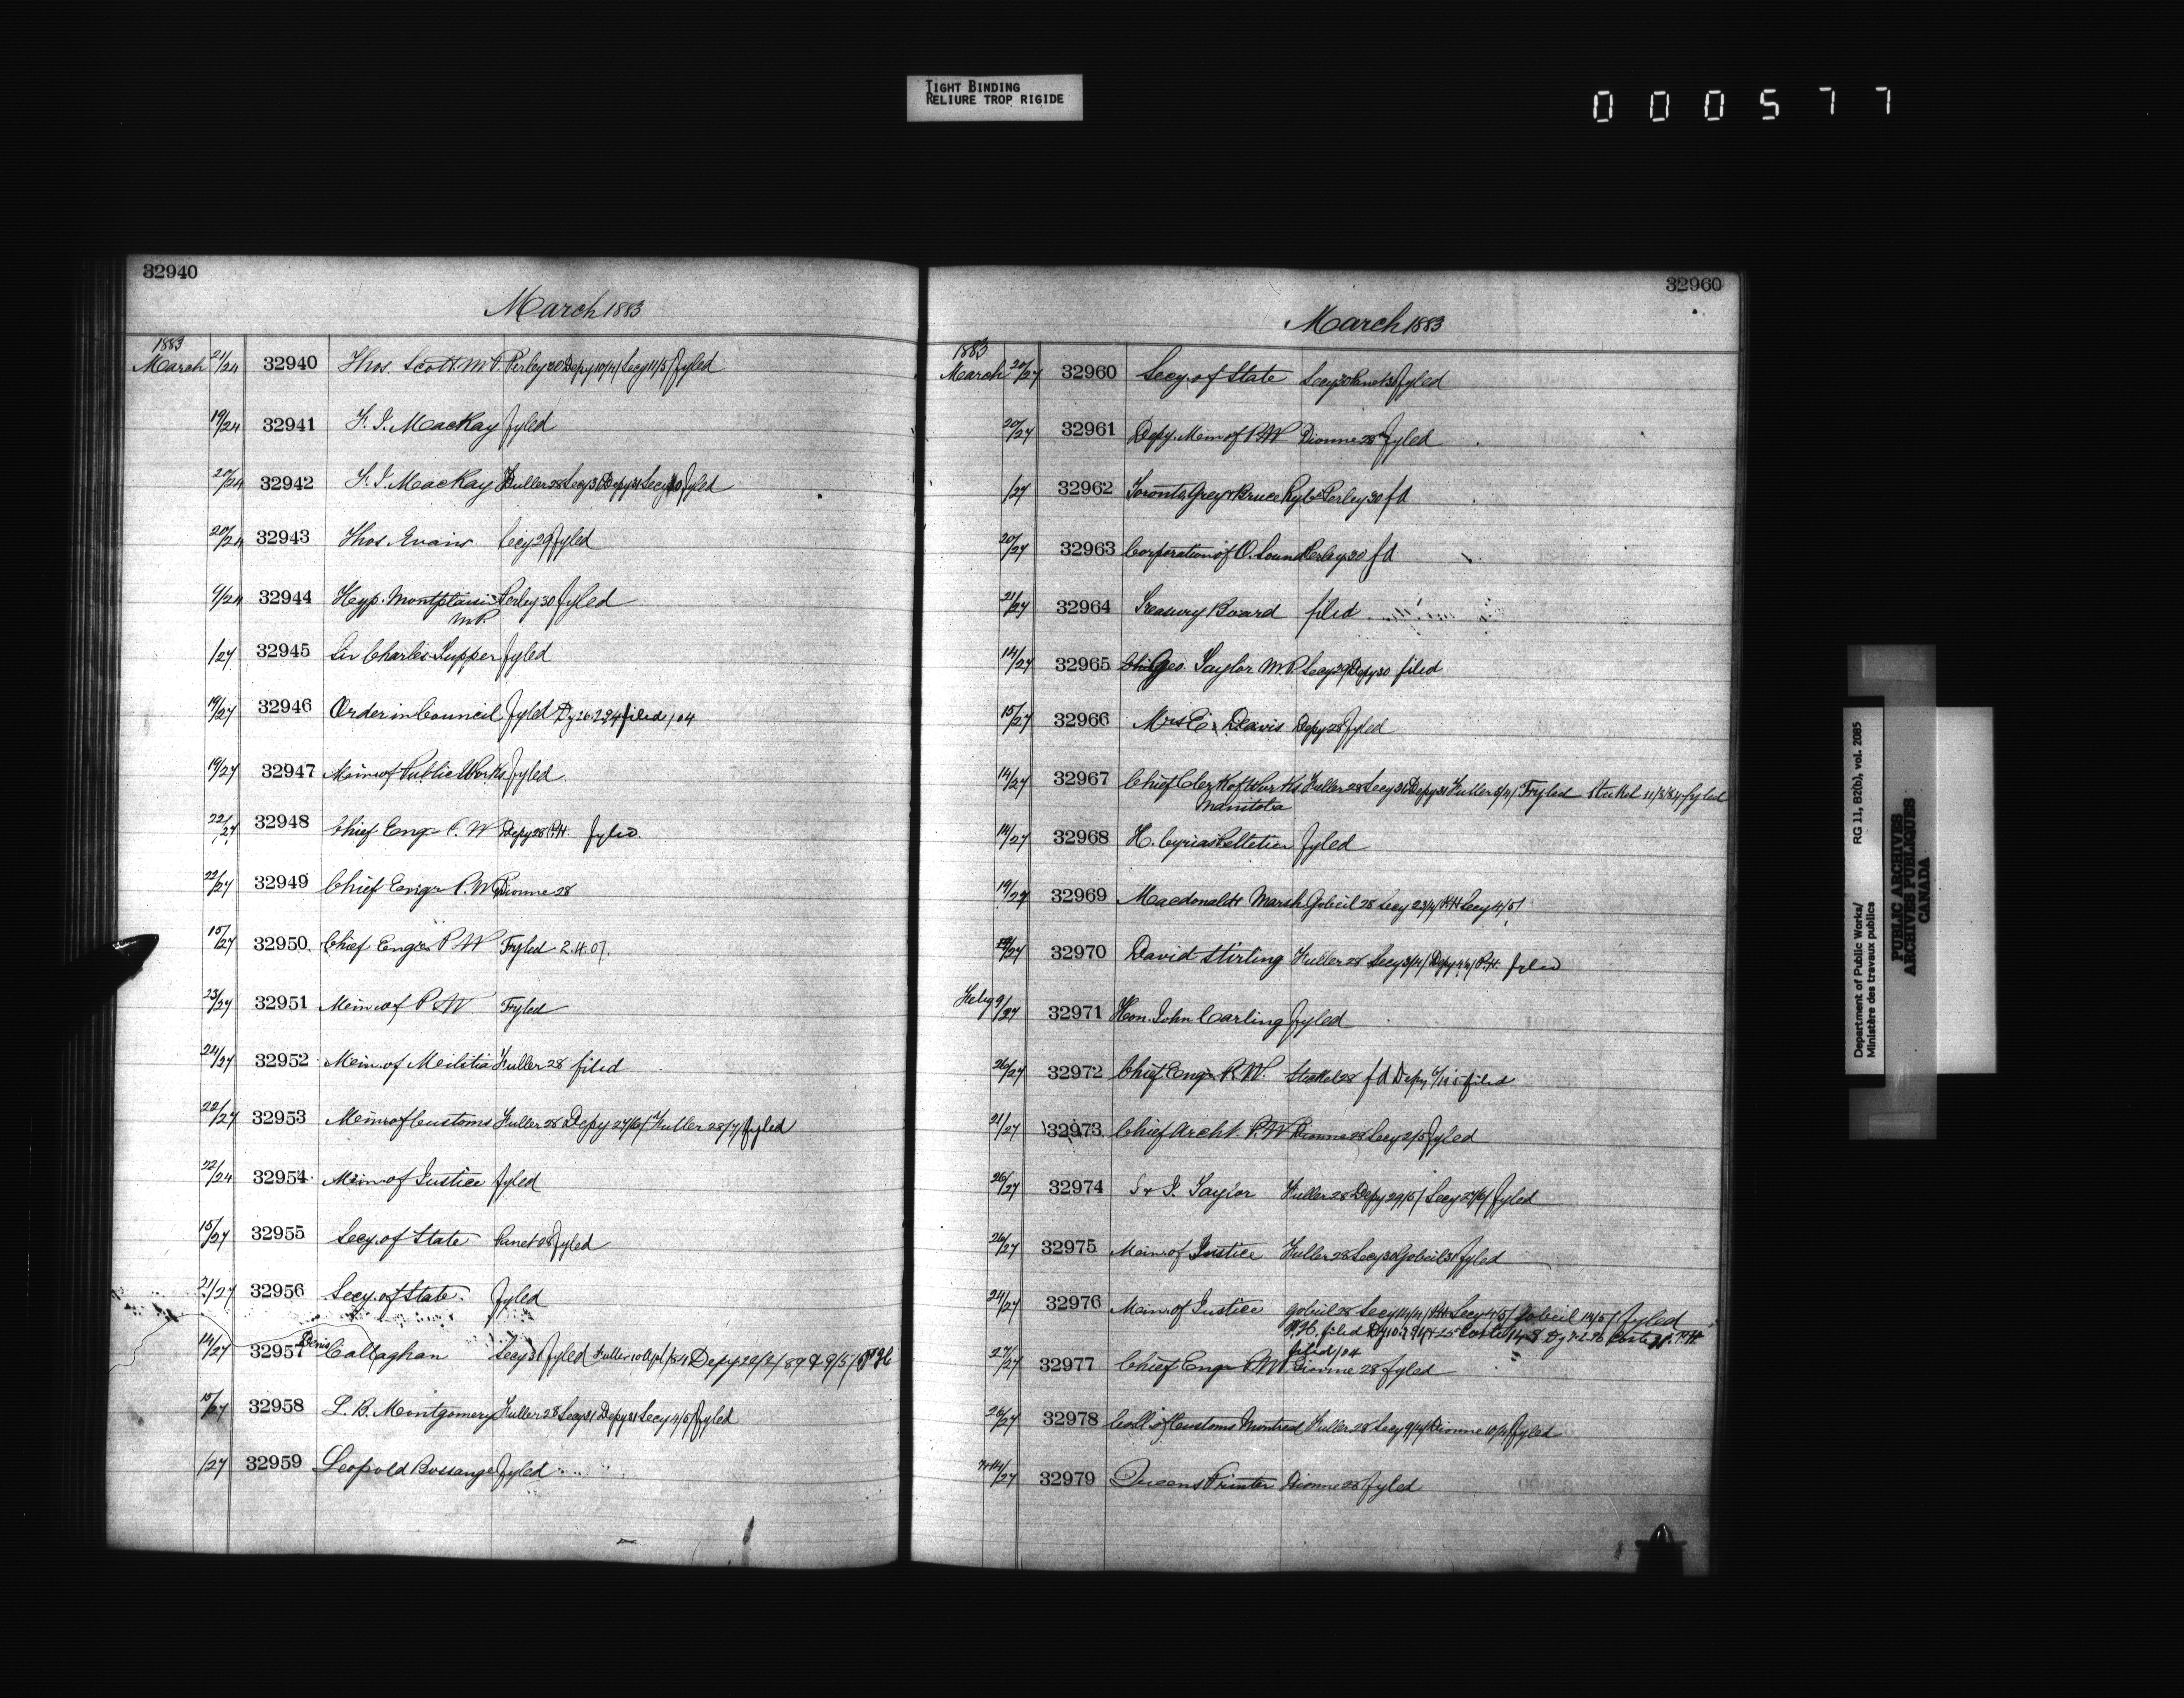 TIGHT BINDING
RELIURE TROP RIGIDE
000577
32940
March 1883
1883
March 21/24 32940 Thos. Scott M.P. Perley 30 Depy 10/4/ Secy 11/5/ fyled
19/24 32941 MacKay fyled
20/24 32942 MacKay Fuller 28 Secy 31 Depy 31 Secy fyled
20/24 32943 Thos. Evans Secy 29 fyled
/24 32944 Hyp. Montplaisir Perley 30 fyled
M.P.
/27 32945 Sir Charles Tupper fyled
19/27 32946 Order in Council fyled Dy 26.2.94 filed /04
19/27 32947 Min. of Public Works fyled
22/27 32948 Chief Engr P.W Depy 28 P.H. fyled
22/27 32949 Chief Engr P.W Dionne 28
15/27 32950 Chief Engr P.W Fyled 2.4.07.
23/27 32951 Min. of P.W Fyled
24/27 32952 Min. of Militia Fuller 28 filed
22/27 32953 Min. of Customs Fuller 28 Depy 27/6/ Fuller 28/7/ fyled
22/24 32954 Min. of Justice fyled
15/27 32955 Secy. of State Panet 28 fyled
21/27 32956 Secy. of State fyled
14/27 32957 Denis Callaghan Secy 31 fyled Fuller 10 /84 Depy 22/2/89 & 9/5/
15/27 32958 L. B. Montgomery Fuller 28 Secy 31 Depy 31 Secy 4/5/ fyled
/27 32959 Leopold Bossange fyled
32960
March 1883
1883
March 20/27 32960 Secy. of State Secy 30 Panet 31 fyled
20/27 32961 Depy. Min of P.W Dionne 28 fyled
/27 32962 Toronto, Grey & Bruce Ry Co Perley 30 fd
20/27 32963 Corporation of O. Sound Perley 30 fd
21/27 32964 Treasury Board filed
14/27 32965 Geo. Taylor M.P. Secy 29 Depy 30 filed
15/27 32966 Mrs E. Davis Depy 28 fyled
14/27 32967 Chief Clerk of Works Fuller 28 Secy 31 Depy 31 Fuller 3/4/ Fyled Steckel 11/3/84 fyled
Manitoba
14/27 32968 H. Cyrias Pelletier fyled
19/27 32969 Macdonald & Marsh Gobeil 28 Secy 23/4/ P.H Secy 4/5/
/27 32970 David Stirling Fuller 28 Secy 3/4/ Depy 4/4/ P.H. fyled
Feby 9/27 32971 Hon. John Carling fyled
26/27 32972 Chief Engr P.W. Steckel 28 fd Depy filed
21/27 32973 Chief Archt. P.W Dionne 28 Secy 2/5 fyled
26/27 32974 Taylor Fuller 28 Depy 29/5/ Secy 27/6/ fyled
26/27 32975 Min. of Justice Fuller 28 Secy 30 Gobeil 31 fyled
24/27 32976 Min. of Justice Gobeil 28 Secy 14/4/ P.H Secy 4/5/ Gobeil 14/5/ fyled
P.H. filed P.H.
filed /04
27/27 32977 Chief Engr P.W Dionne 28 fyled
26/27 32978 Coll. of Customs Montreal Fuller 28 Secy 9/4/ Dionne 10/4/ fyled
/27 32979 Queens Printer Dionne 28 fyled
Department of Public Works/
Ministère des travaux publics
RG 11, B2(b), vol. 2085
PUBLIC ARCHIVES
ARCHIVES PUBLIQUES
CANADA